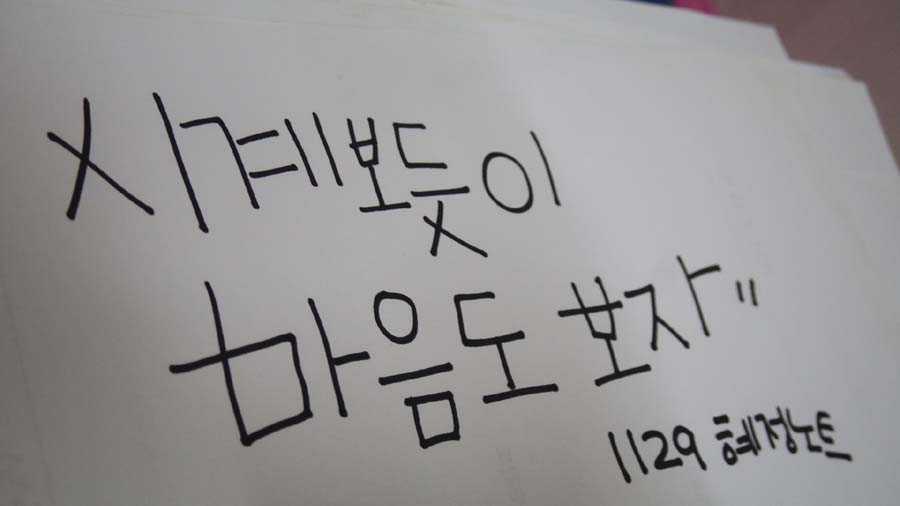 시계보듯이
마음도 보자"
1129 혜정노트